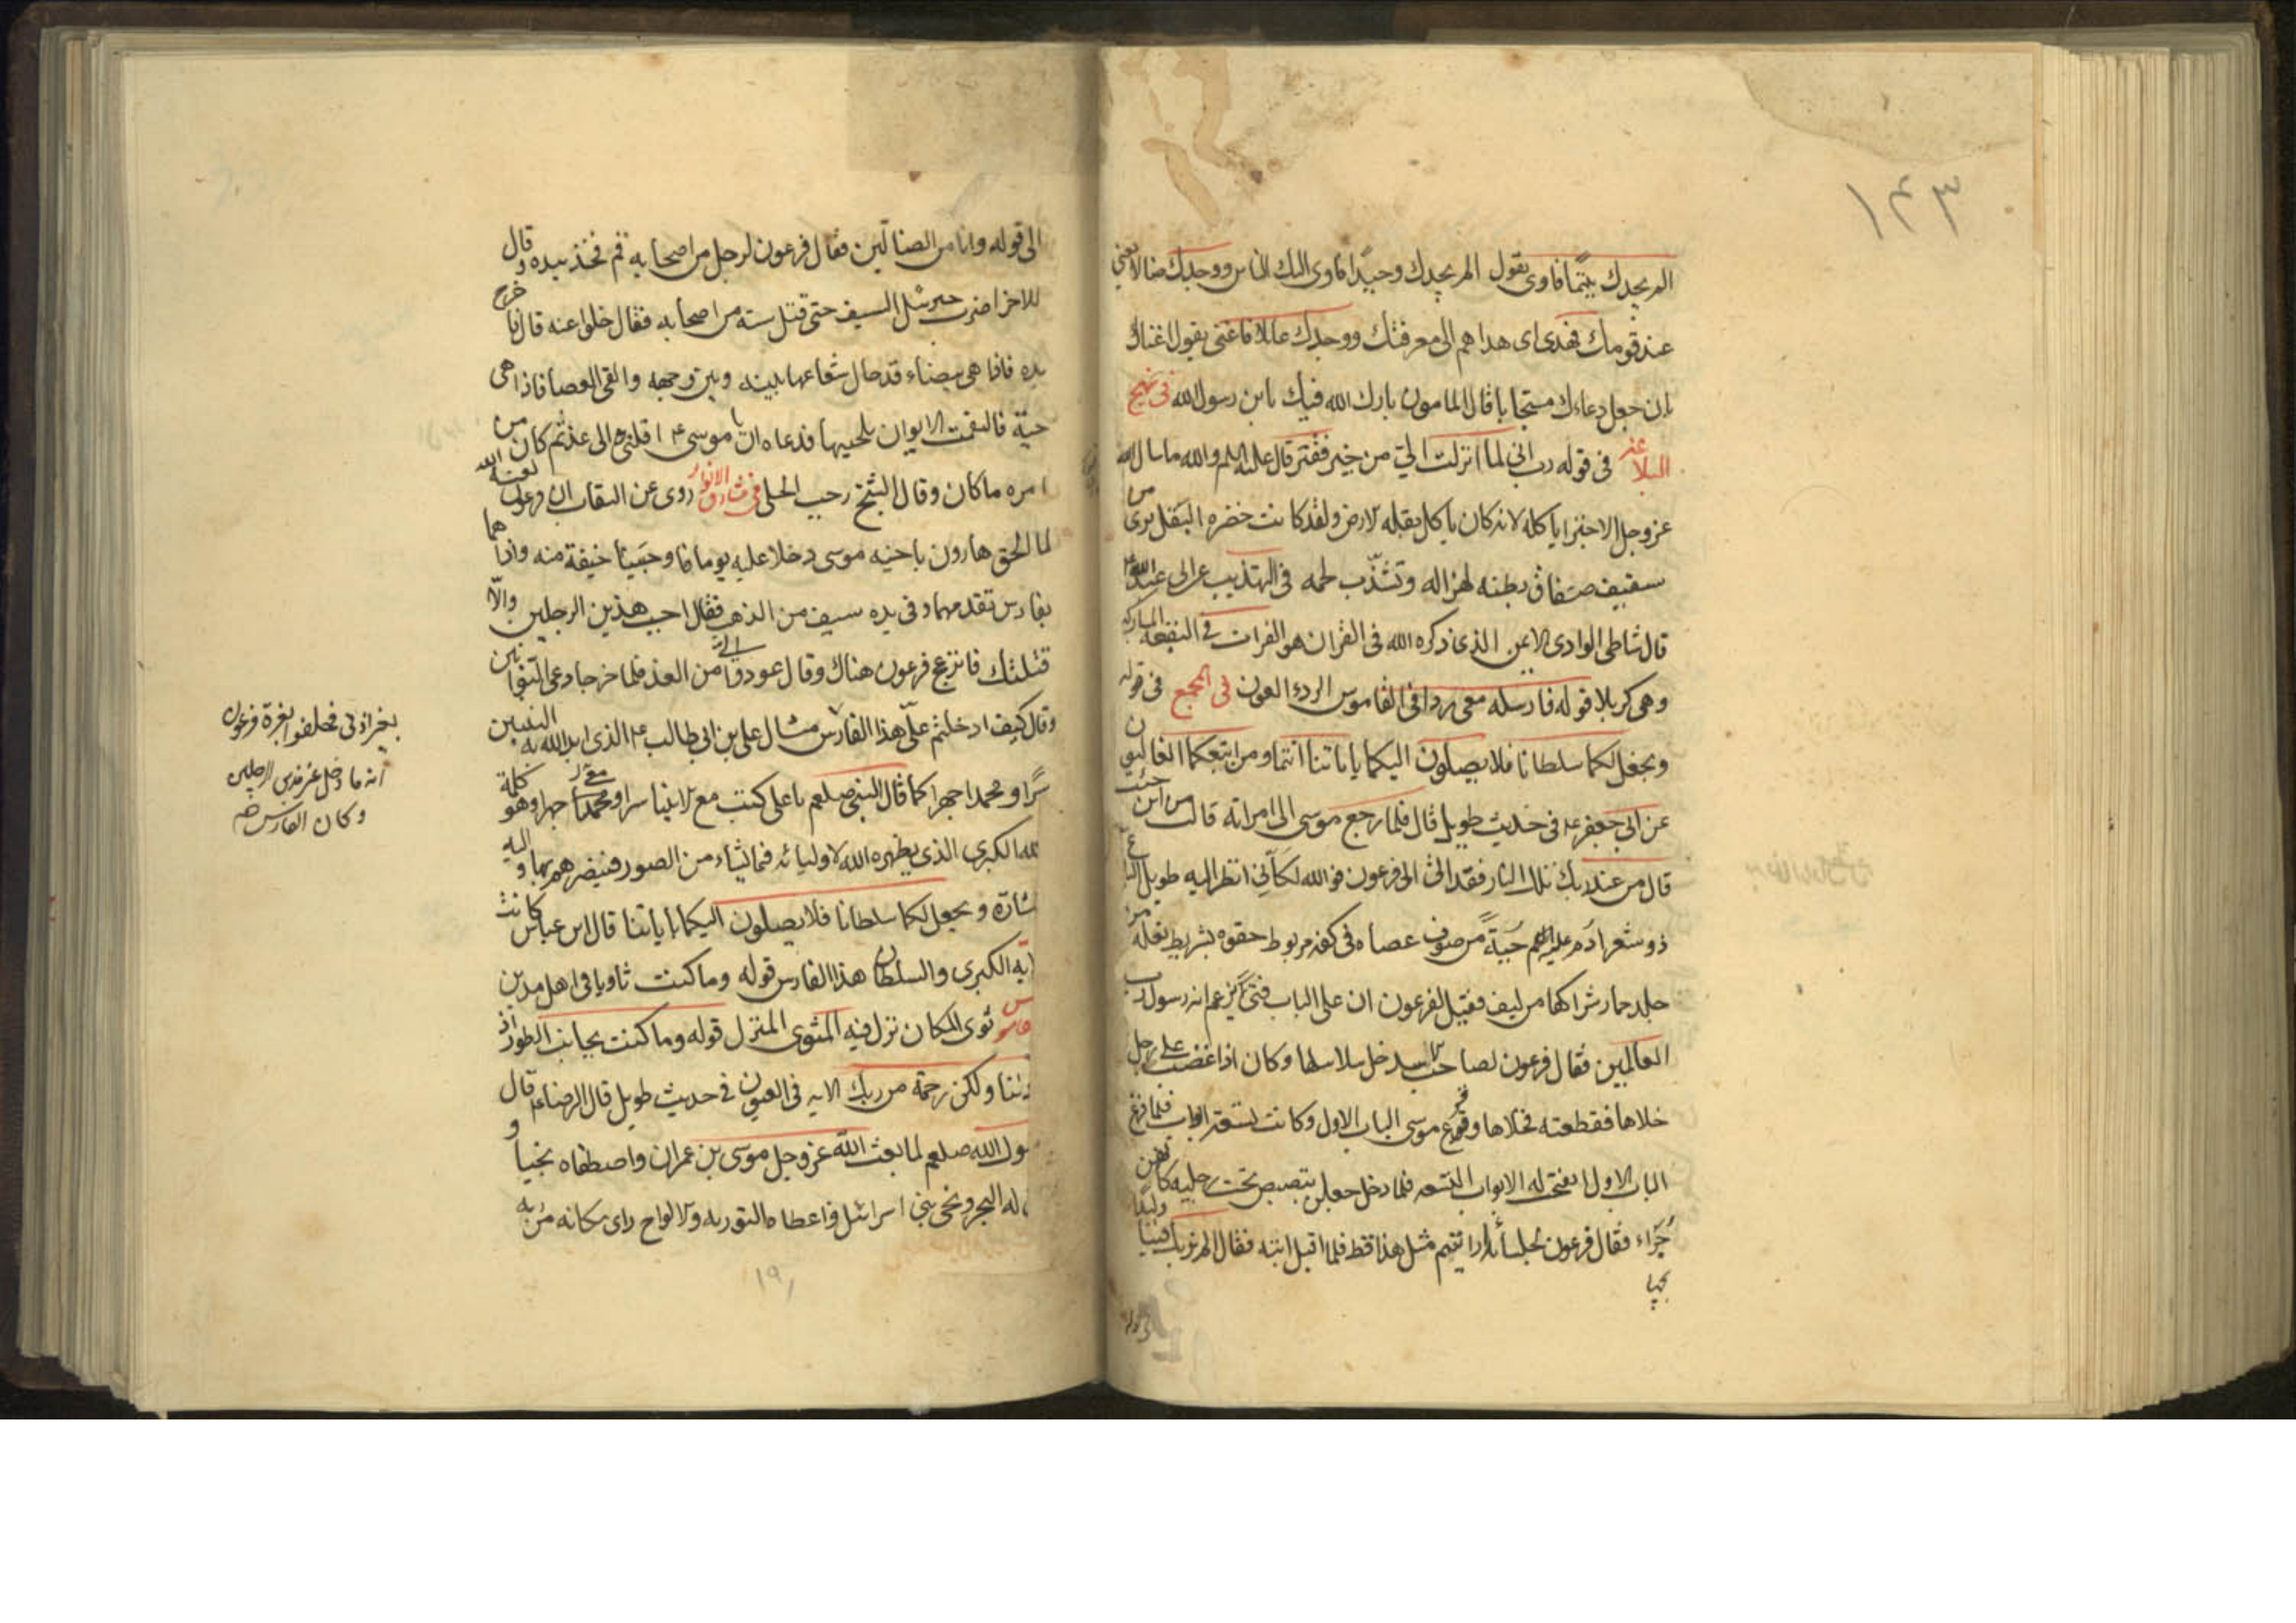 ١٤٣
الم يجدك يتيما فاوى يقول الم يجدك وحيدا فاوى اليك الناس ووجدك ضالا يعنى
عند قومك فهدى اى هداهم الى معرفتك ووجدك عائلا فاغنى يقول اغناك
بان جعل دعاءك مستجابا قال المامون بارك الله فيك يا بن رسول الله فى نهج
البلاغة فى قوله رب انى لما انزلت الى من خير فقير قال عليه السلم والله ما سال الله
عز وجل الا خبزا ياكله لانه كان ياكل بقلة الارض ولقد كانت خضرة البقل ترى من
شفيف صفاق بطنه لهزاله وتشذب لحمه فى التهذيب عن ابى عبد الله ع
قال شاطى الوادى الايمن الذى ذكره الله فى القران هو الفرات فى البقعة المباركة
وهى كربلا قوله فارسله معى ردا فى القاموس الردء العون فى المجمع فى قوله
ونجعل لكما سلطانا فلا يصلون اليكما باياتنا انتما ومن اتبعكما الغالبون
عن ابى جعفر ع فى حديث طويل قال فلما رجع موسى الى امراته قالت من اين جئت
قال من عند رب تلك النار فغدا الى فرعون فوالله لكانى انظر اليه طويل الباع
ذو شعر ادم عليه جبة من صوف عصاه فى كفه مربوط حقوه بشريط نعله من
جلد حمار شراكها من ليف فقيل لفرعون ان على الباب فتى يزعم انه رسول رب
العالمين فقال فرعون لصاحب الاسد خل سلاسلها وكان اذا غضب على رجل
خلاها فقطعته فخلاها وقرع موسى الباب الاول وكانت تسعة ابواب فلما قرع
الباب الاول انفتحت له الابواب التسعة فلما دخل جعلن يتبصبص تحت رجليه كانهن
جراء فقال فرعون لجلسائه ارايتم مثل هذا قط فلما اقبل اليه فقال الم نربك فينا وليدا
الى قوله وانا من الضالين فقال فرعون لرجل من اصحابه قم فخذ بيده وقال
للاخر اضرب عنقه فضرب جبرئيل السيف حتى قتل ستة من اصحابه فقال خلوا عنه قال فاخرج
يده فاذا هى بيضاء قد حال شعاعها بينه وبين وجهه والقى العصا فاذا هى
حية فالتقمت الايوان بلحييها فدعاه ان يا موسى ع اقلنى الى غد ثم كان من
امره ما كان وقال الشيخ رجب الحلى فى مشارق الانوار روى عن الثقات ان فرعون لعنه الله
لما لحق هارون باخيه موسى دخلا عليه يوما فاوجسا خيفة منه واذا هما
بفارس تقدمهما وفى يده سيف من الذهب فقال اجب هذين الرجلين والا
قتلتك فانزعج فرعون هناك وقال عودوا الى من الغد فلما خرجا دعى البوابين
وقال كيف ادخلتم على هذا الفارس مثال على بن ابى طالب ع الذى ايد الله به النبيين
سرا ومحمدا جهرا كما قال النبى صلعم يا على كنت مع الانبيا سرا ومعى جهرا وهو كلمة
الله الكبرى الذى يظهره الله لاوليائه فيما يشاء من الصور فينصرهم بها واليه
اشارة ونجعل لكما سلطانا فلا يصلون اليكما باياتنا قال ابن عباس كانت
الاية الكبرى والسلطان هذا الفارس قوله وما كنت ثاويا فى اهل مدين
قاموس ثوى المكان نزل فيه المثوى المنزل قوله وما كنت بجانب الطور اذ
نادينا ولكن رحمة من ربك الاية فى العيون فى حديث طويل قال الرضا ع قال
رسول الله صلعم لما بعث الله عز وجل موسى بن عمران واصطفاه نجيا و
فلق له البحر ونجى بنى اسرائيل واعطاه التورية والالواح راى مكانه من ربه
بغير اذنى فحلفوا بعزة فرعون
انه ما دخل غير هذين الرجلين
وكان الفارس
١٩